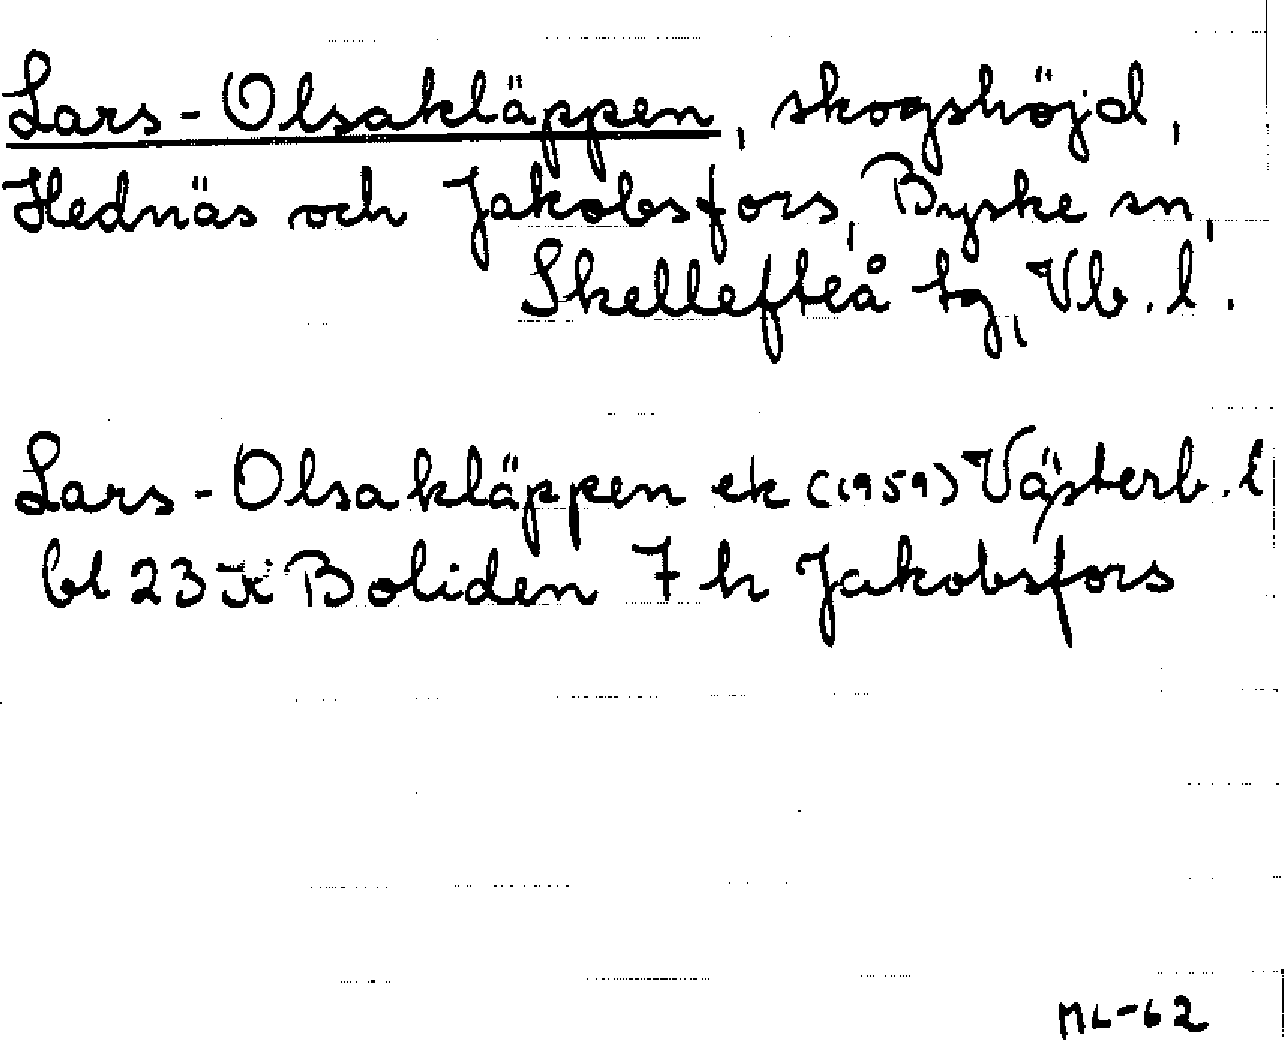 Lars-Olsakläppen, skogshöjd,
Hednäs och Jakobsfors, Byske sn,
Skellefteå tg, Vb. l.
Lars-Olsakläppen ek (1959) Västerb. l
bl 23 K Boliden 7 h Jakobsfors
ML-62